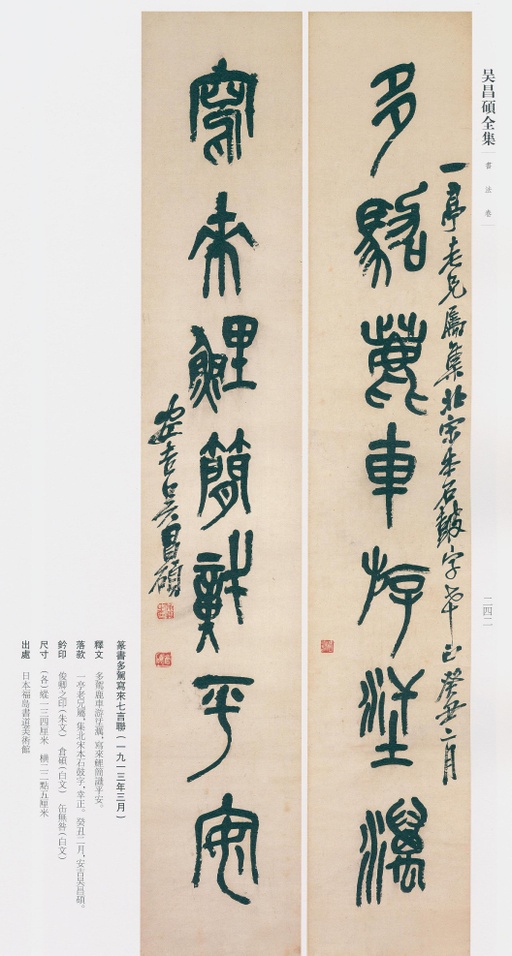 吴昌碩全集
書法卷
二四二
一亭老兄屬集北宋本石鼓字幸正癸丑二月
多駕鹿車游汢澫
寫來鯉簡識平安
安吉吴昌碩
篆書多駕寫來七言聯（一九一三年三月）
釋文 多駕鹿車游汢澫，寫來鯉簡識平安。
落款 一亭老兄屬，集北宋本石鼓字，幸正。癸丑二月，安吉吴昌碩。
鈐印 俊卿之印（朱文） 倉碩（白文） 缶無咎（白文）
尺寸 （各）縱一三四厘米 横二二點五厘米
出處 日本福島書道美術館